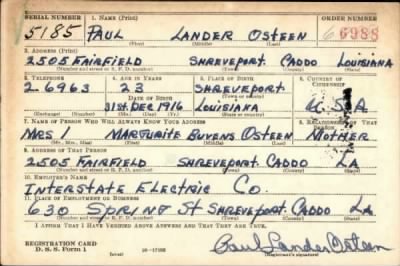 SERIAL NUMBER 1. NAME (Print) ORDER NUMBER
5185 PAUL LANDER OSTEEN 6988
(First) (Middle) (Last)
2. ADDRESS (Print)
2505 FAIRFIELD SHREVEPORT. CADDO LOUISIANA
(Number and street or R. F. D. number) (Town) (County) (State)
3. TELEPHONE 4. AGE IN YEARS 5. PLACE OF BIRTH 6. COUNTRY OF CITIZENSHIP
2-6963 23 SHREVEPORT
DATE OF BIRTH (Town or county)
31st DEC. 1916 LOUISIANA U.S.A
(Exchange) (Number) (Mo.) (Day) (Yr.) (State or country)
7. NAME OF PERSON WHO WILL ALWAYS KNOW YOUR ADDRESS 8. RELATIONSHIP OF THAT PERSON
MRS MARGURITE BUVENS OSTEEN MOTHER
(Mr., Mrs., Miss) (First) (Middle) (Last)
9. ADDRESS OF THAT PERSON
2505 FAIRFIELD SHREVEPORT. CADDO LA
(Number and street or R. F. D. number) (Town) (County) (State)
10. EMPLOYER'S NAME
INTERSTATE ELECTRIC CO.
11. PLACE OF EMPLOYMENT OR BUSINESS
630 SPRING ST SHREVEPORT. CADDO LA.
(Number and street or R. F. D. number) (Town) (County) (State)
I AFFIRM THAT I HAVE VERIFIED ABOVE ANSWERS AND THAT THEY ARE TRUE.
REGISTRATION CARD
D. S. S. Form 1 (over) Paul Lander Osteen
(Registrant's signature)